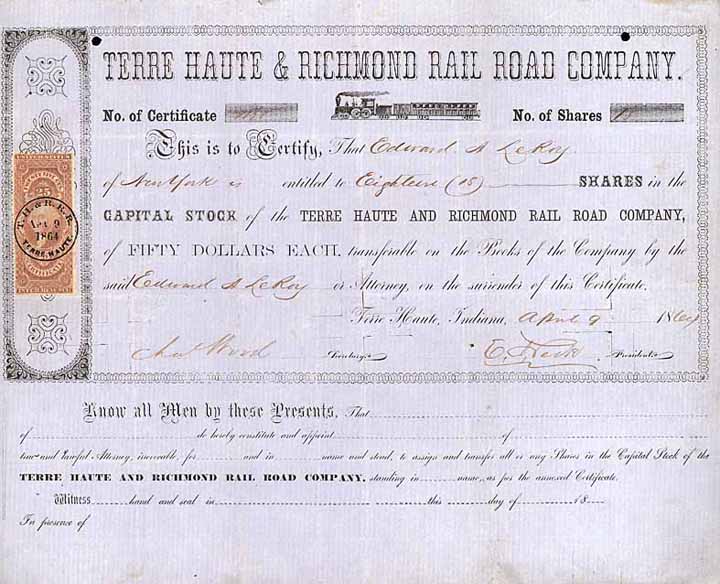 TERRE HAUTE & RICHMOND RAIL ROAD COMPANY.
No. of Certificate No. of Shares
This is to Certify, That Edward A LeRoy
of New York is entitled to Eighteen (18) SHARES in the
CAPITAL STOCK of the TERRE HAUTE AND RICHMOND RAIL ROAD COMPANY,
of FIFTY DOLLARS EACH, transferable on the Books of the Company by the
said Edward A LeRoy or Attorney, on the surrender of this Certificate.
Terre Haute, Indiana, April 9 1864
Chas Wood Secretary. President.
UNITED STATES
25
T. H. & R. R. R.
APR 9
1864
TERRE HAUTE.
CERTIFICATE
INTER. REVENUE
Know all Men by these Presents, That
of do hereby constitute and appoint of
true and Lawful Attorney, irrevocable, for and in name and stead, to assign and transfer all or any Shares in the Capital Stock of the
TERRE HAUTE AND RICHMOND RAIL ROAD COMPANY, standing in name, as per the annexed Certificate.
Witness hand and seal in this day of 18
In presence of